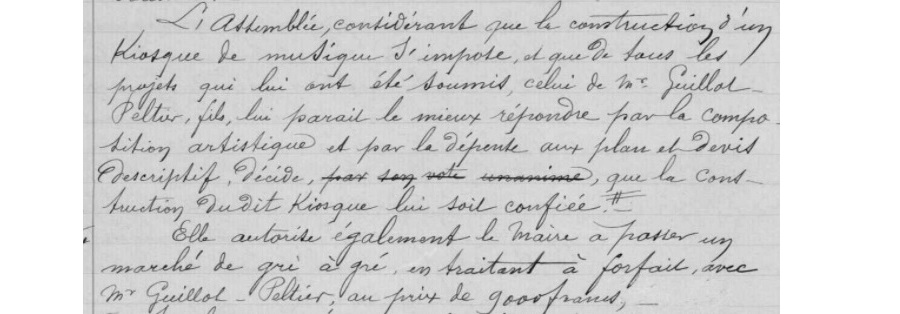 L'Assemblée, considérant que la construction d'un
Kiosque de musique s'impose, et que de tous les
projets qui lui ont été soumis, celui de Mr Guillot-
Peltier, fils, lui parait le mieux répondre par la compo-
sition artistique et par la dépense aux plan et devis
descriptif, décide, par son vote unanime, que la cons-
truction dudit Kiosque lui soit confiée.#
Elle autorise également le Maire à passer un
marché de gré à gré, en traitant à forfait, avec
Mr Guillot-Peltier, au prix de 9000 francs,